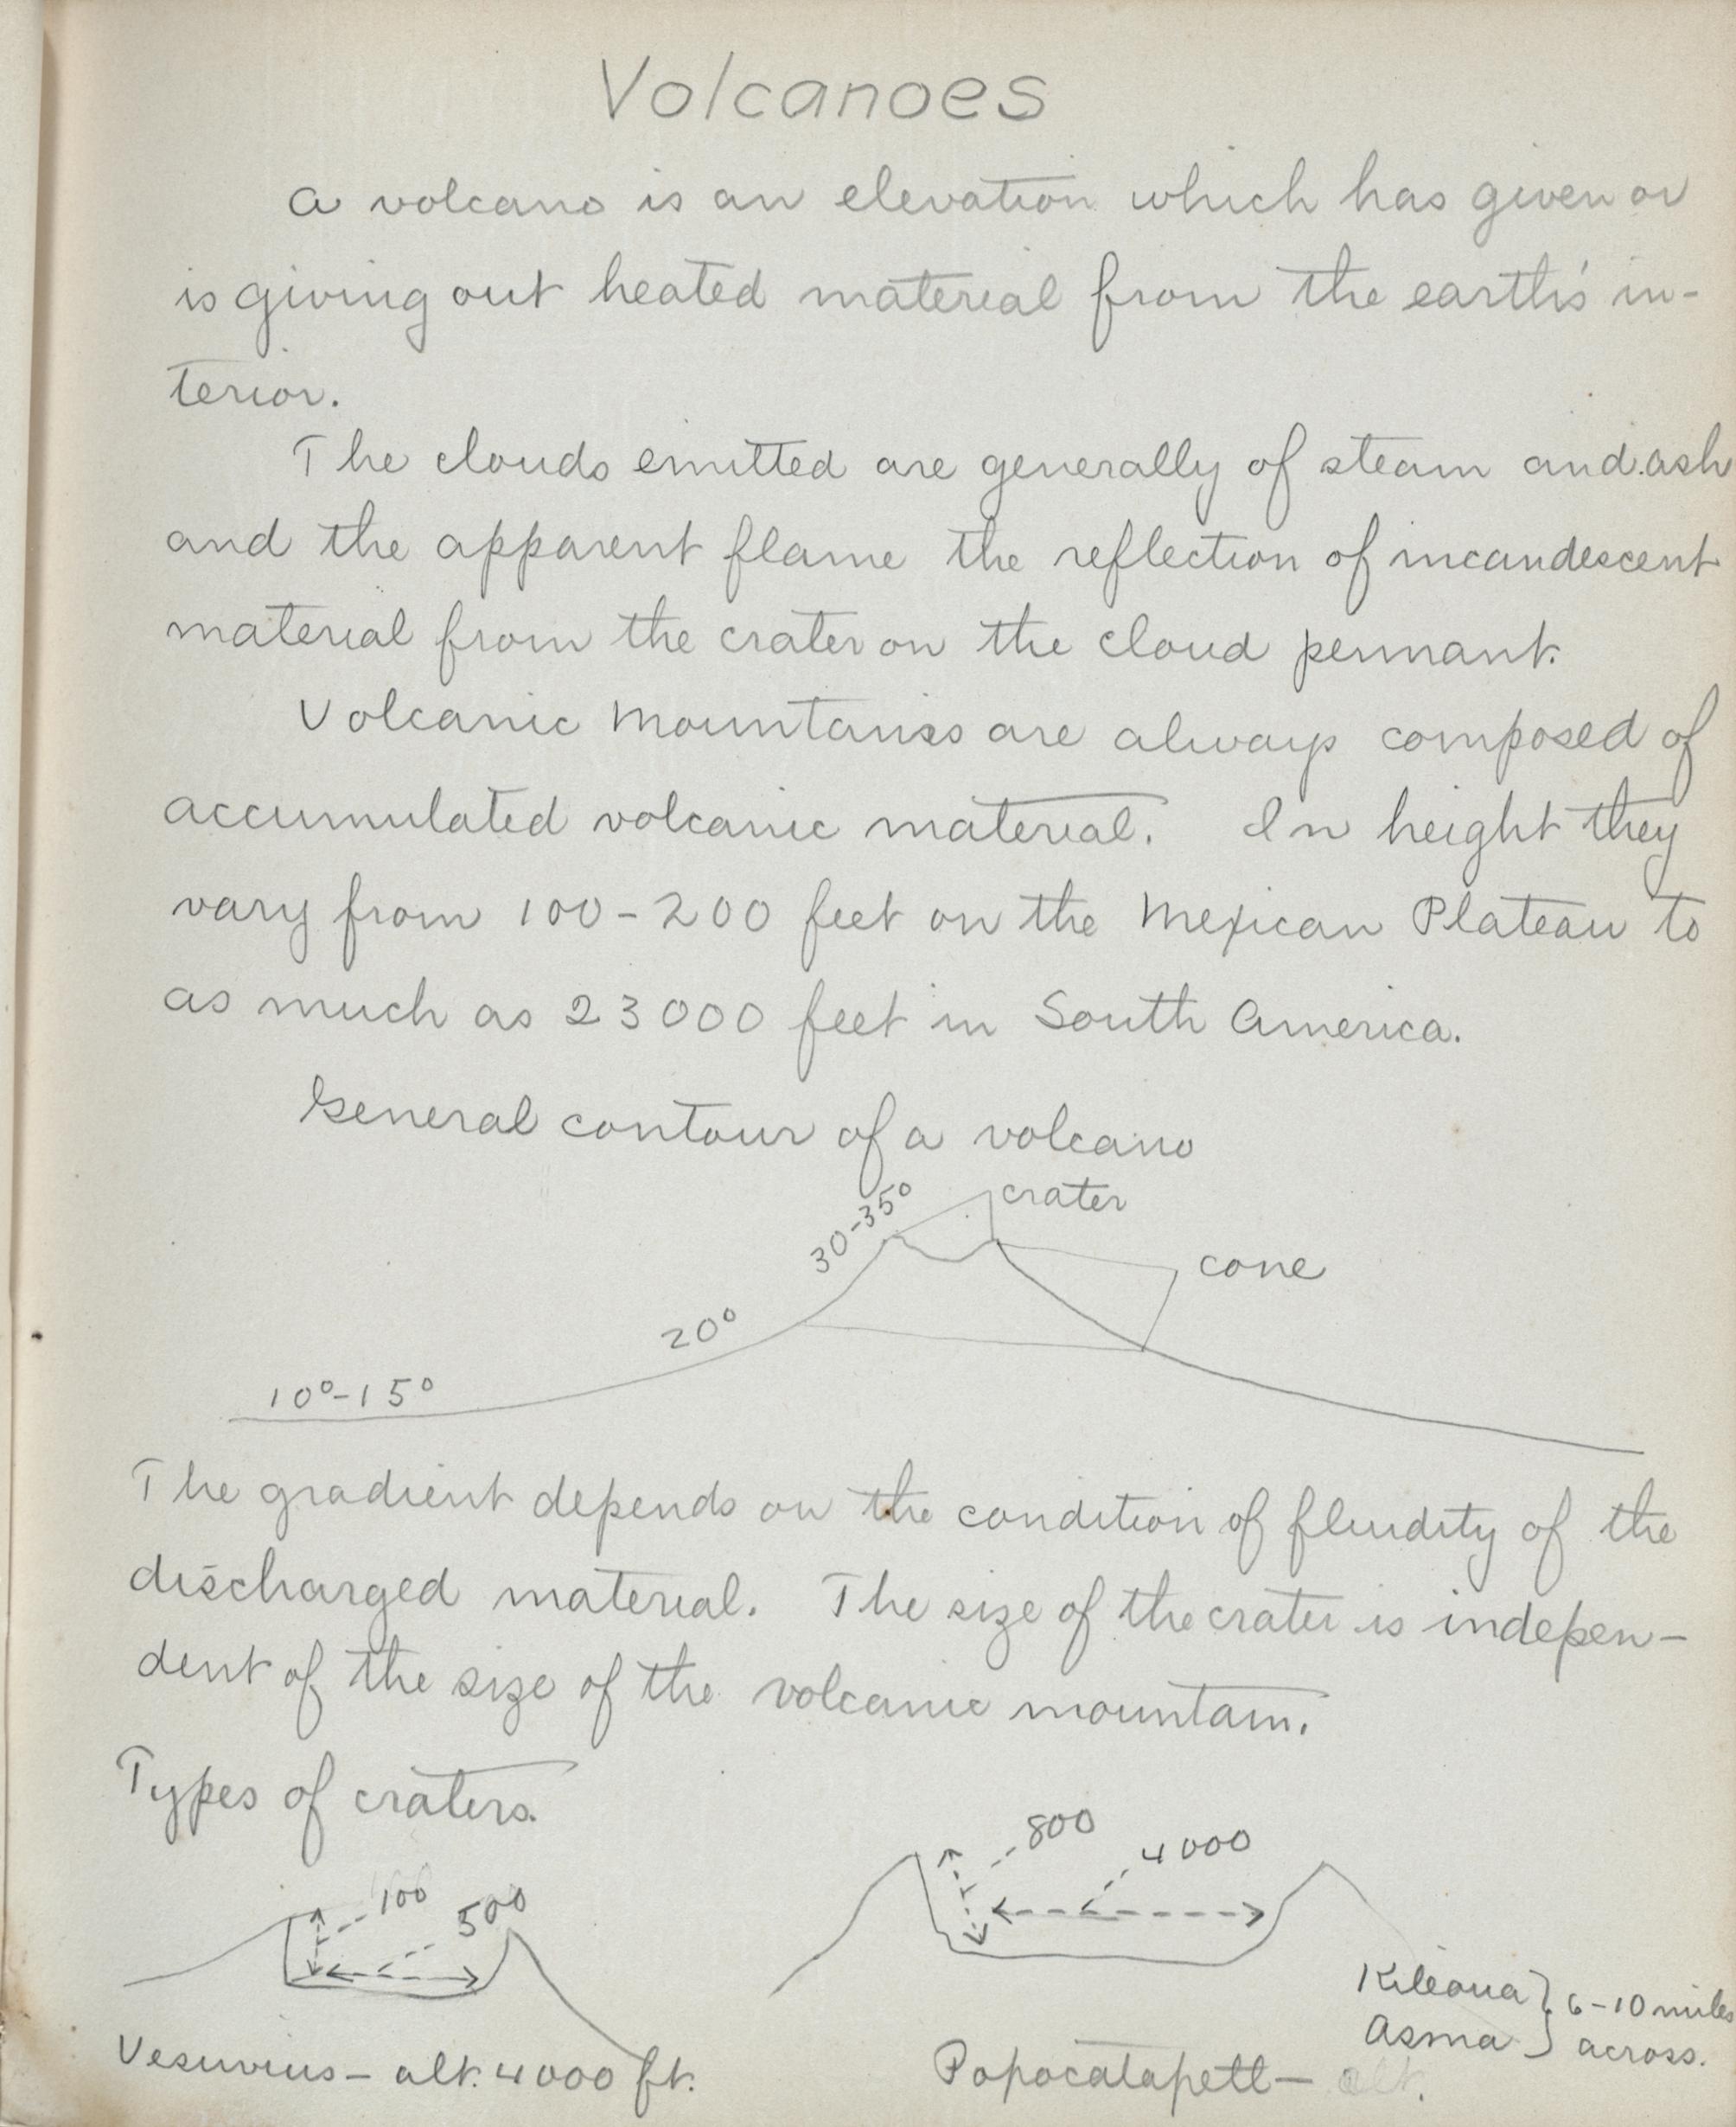 Volcanoes
A volcano is an elevation which has given or
is giving out heated material from the earth's in-
terior.
The clouds emitted are generally of steam and ash
and the apparent flame the reflection of incandescent
material from the crater on the cloud pennant.
Volcanic mountains are always composed of
accumulated volcanic material. In height they
vary from 100-200 feet on the Mexican Plateau to
as much as 23000 feet in South America.
General contour of a volcano
crater
30-35°
cone
20°
10°-15°
The gradient depends on the condition of fluidity of the
discharged material. The size of the crater is indepen-
dent of the size of the volcanic mountain.
Types of craters.
100
500
800
4000
Vesuvius - alt. 4000 ft.
Popocatapetl - alt.
Kileaua } 6-10 miles
Asma } across.